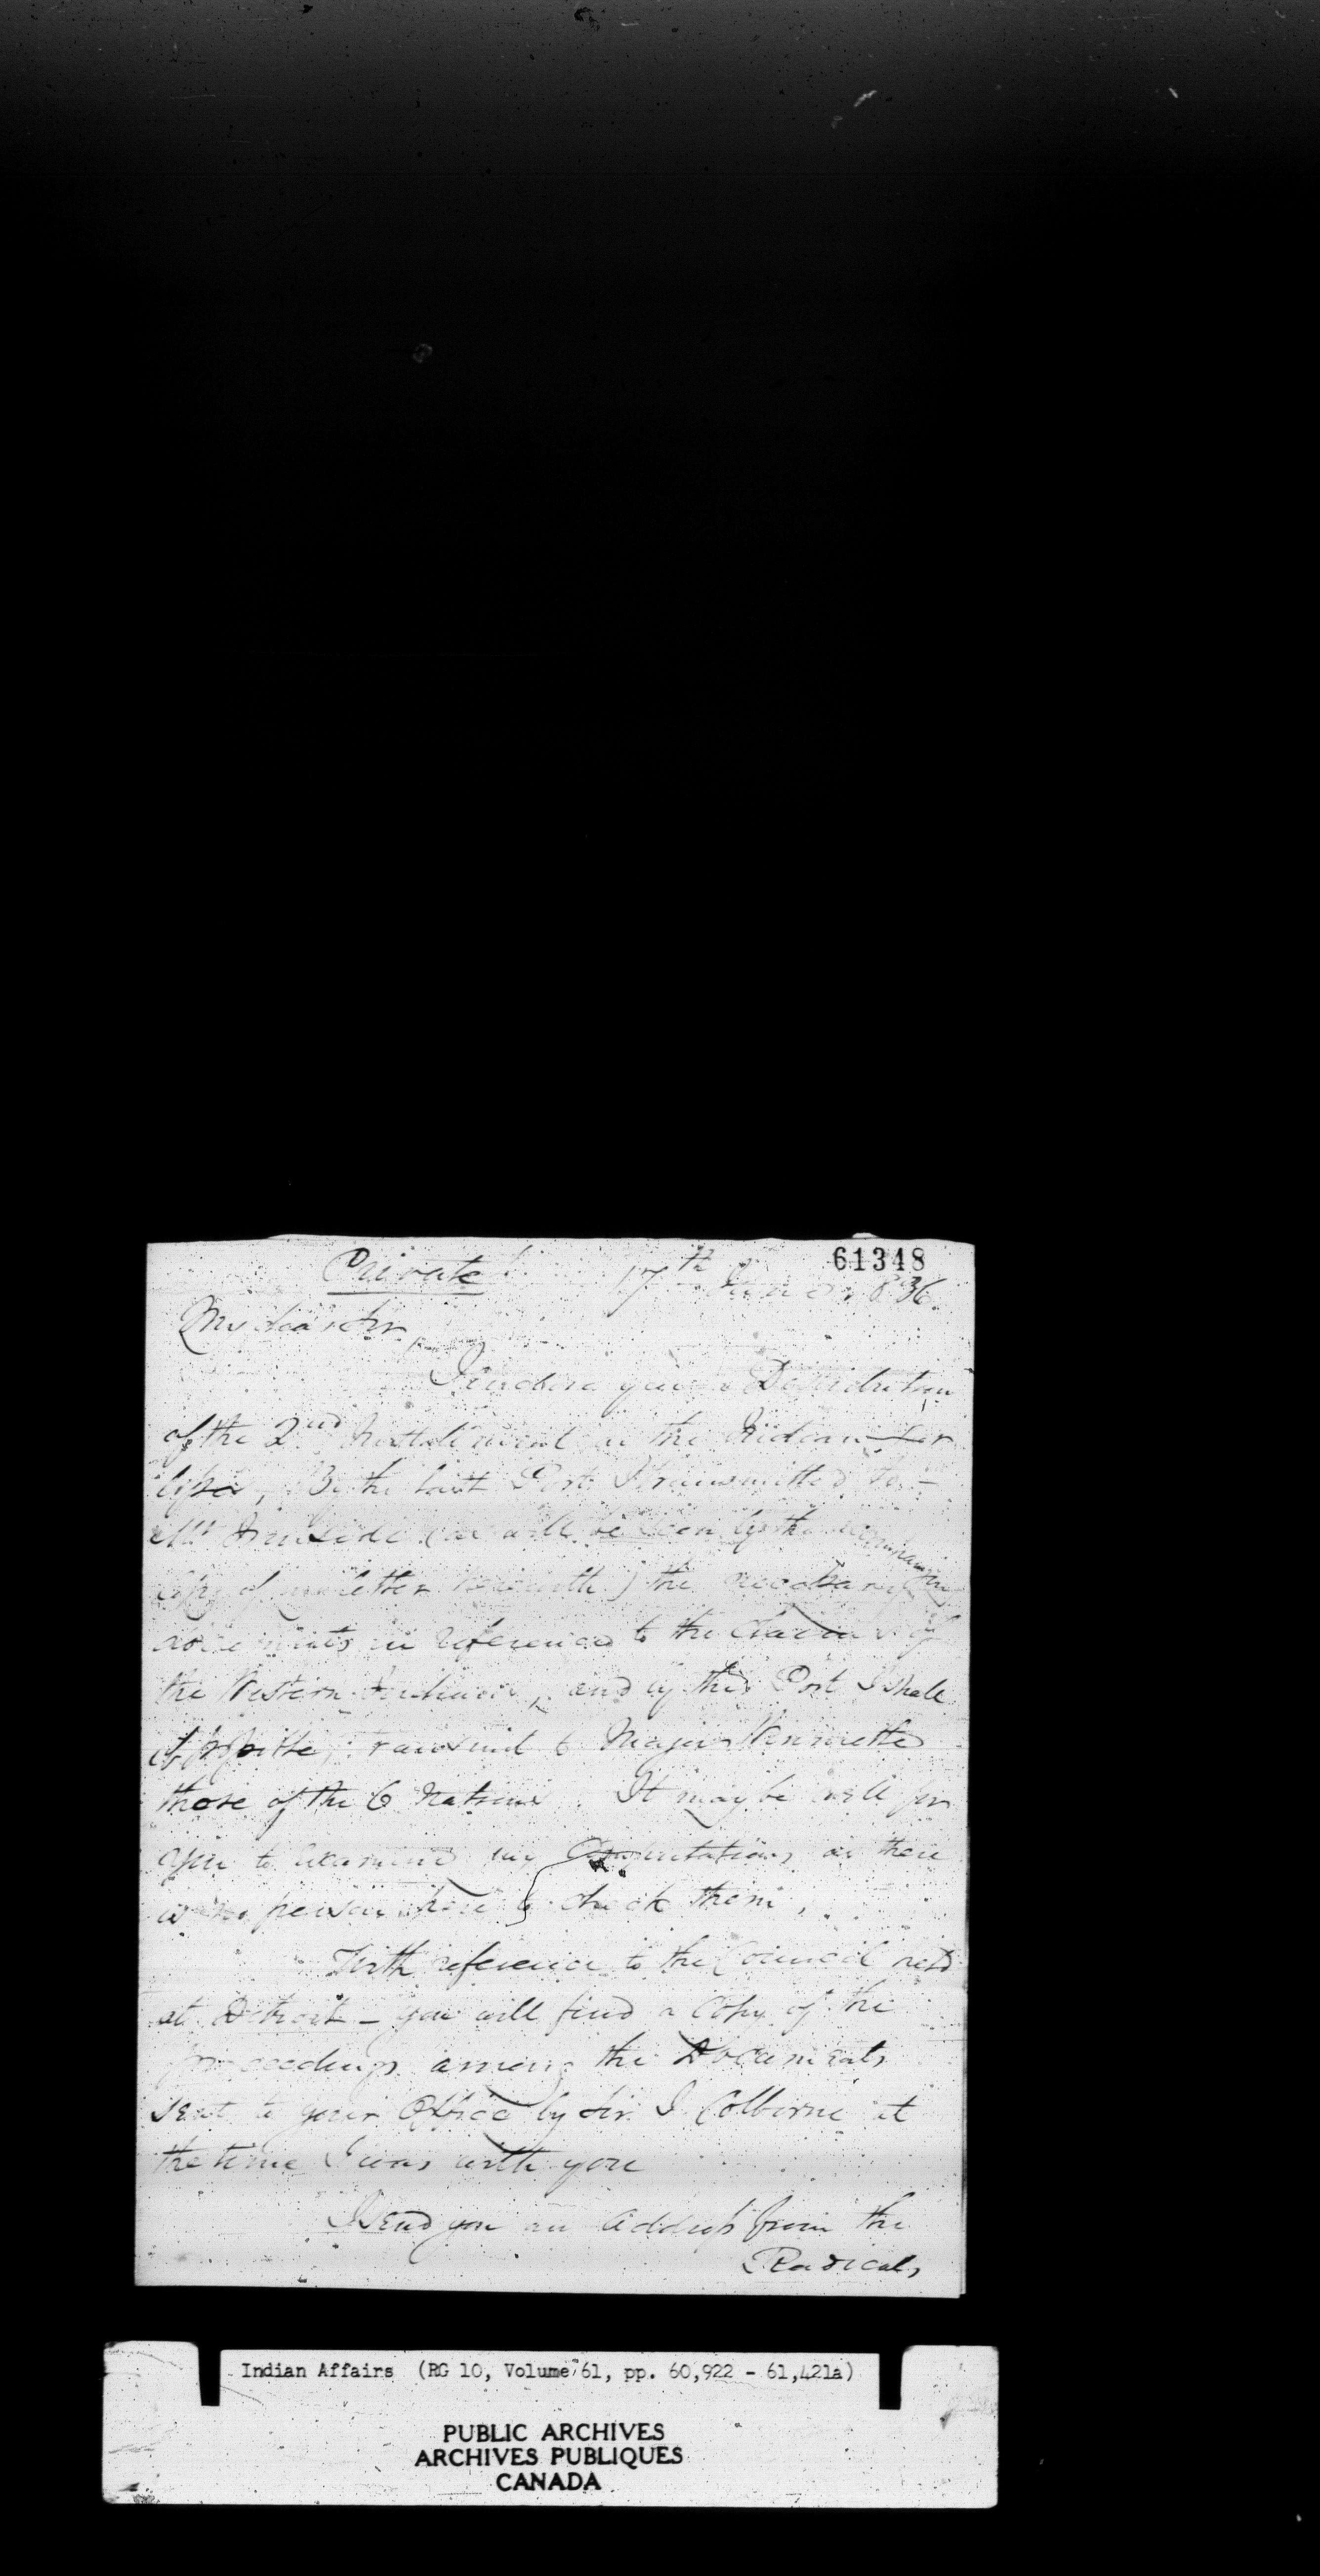 61348
Private 17th June 1836
My dear Sir,
I enclose you a Distribution
of the 2nd Instalment on the Indian
By the last Post I transmitted to
Mr Ironside (as will be seen by the accompanying
copy of my letter herewith) the necessary
documents in reference to the Claims of
the Western Indians, and by this Post I shall
if possible, transmit to Major Winniett
those of the 6 Nations. It may be well for
you to examine my Computations as there
is no person here to check them,
With reference to the Council held
at Detroit - you will find a Copy of the
proceedings among the Documents
sent to your Office by Sir J Colborne at
the time I was with you
I send you an Address from the
Radicals
Indian Affairs (RG 10, Volume 61, pp. 60,922 - 61,421a)
PUBLIC ARCHIVES
ARCHIVES PUBLIQUES
CANADA